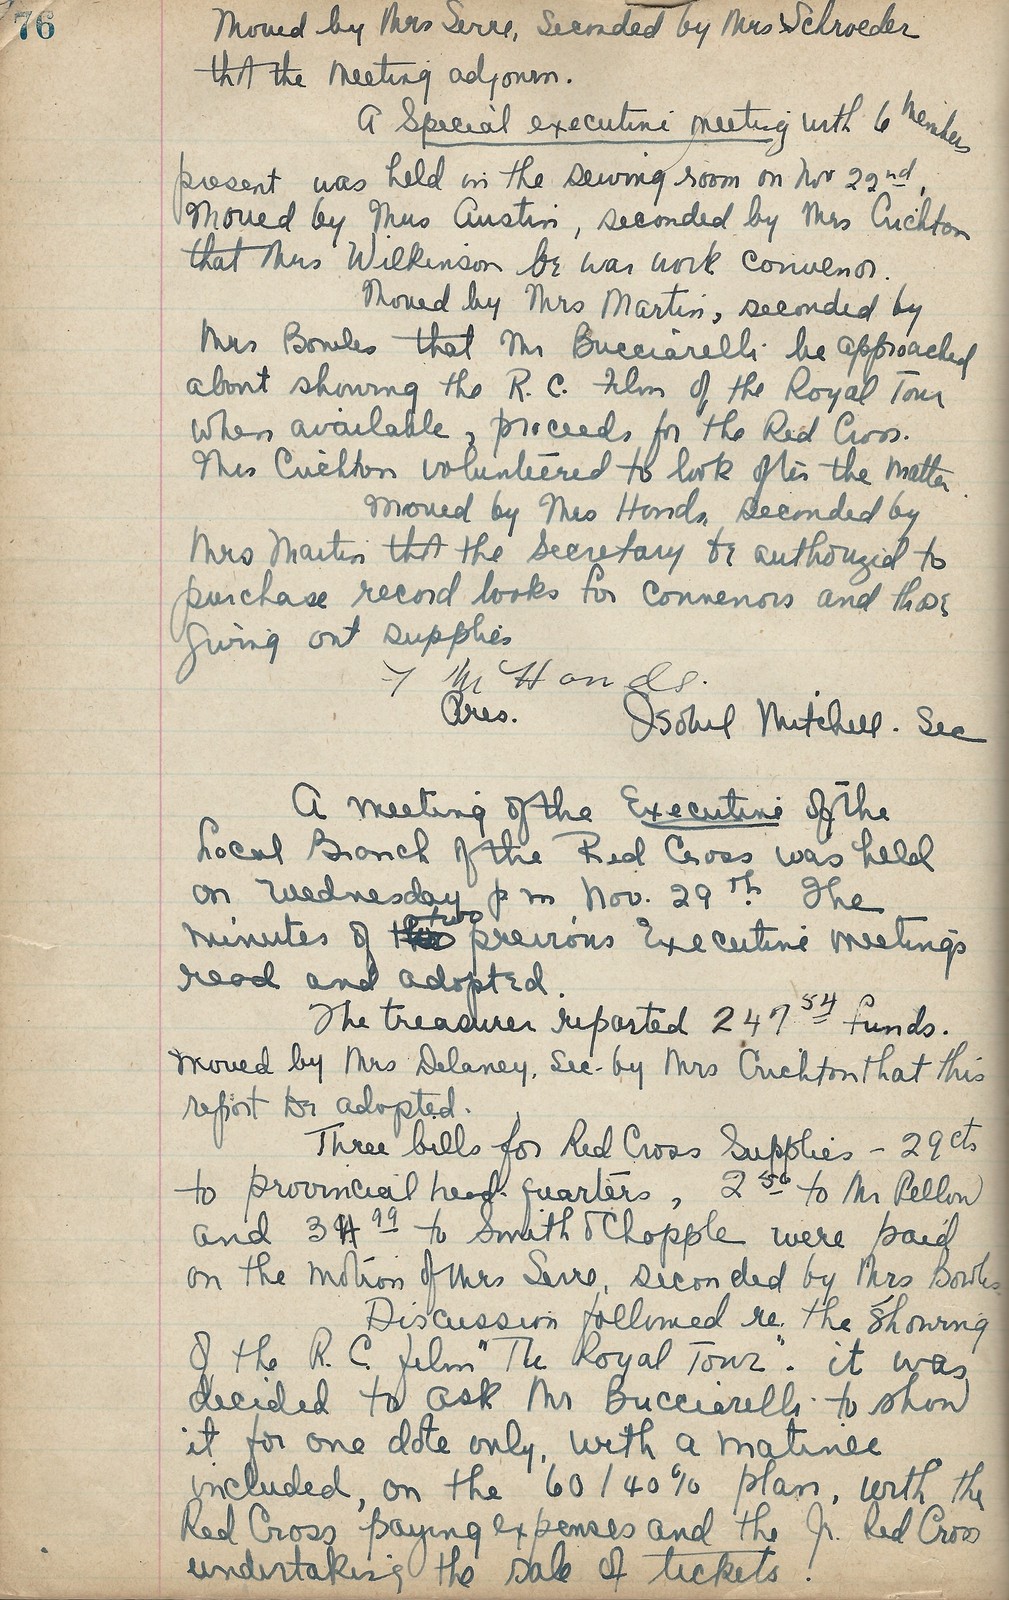 76
Moved by Mrs Serre, Seconded by Mrs Schroeder
that the meeting adjourn.
A Special executive meeting with 6 members
present was held in the sewing room on Nov 22nd,
Moved by Mrs Austin, seconded by Mrs Crichton
that Mrs Wilkinson be war work convenor.
Moved by Mrs Martin, seconded by
Mrs Bowles that Mr Bucciarelli be approached
about showing the R. C. Film of the Royal Tour
when available, proceeds for the Red Cross.
Mrs Crichton volunteered to look after the matter.
Moved by Mrs Hands, seconded by
Mrs Martin that the Secretary be authorized to
purchase record books for convenors and those
giving out supplies
M Hands.
Pres. Isobel Mitchell. Sec
A meeting of the Executive of the
Local Branch of the Red Cross was held
on Wednesday p m Nov. 29th. The
minutes of two previous Executive meetings
read and adopted.
The treasurer reported 247 54 funds.
Moved by Mrs Delaney, Sec. by Mrs Crichton that this
report be adopted.
Three bills for Red Cross Supplies - 29 cts
to provincial head-quarters, 2 50 to Mr Pellow
and 34 99 to Smith & Chopple were paid
on the motion of Mrs Serre, seconded by Mrs Bowles
Discussion followed re. the showing
of the R. C. film "The Royal Tour". it was
decided to ask Mr Bucciarelli to show
it for one date only, with a matinee
included, on the 60/40% plan, with the
Red Cross paying expenses and the Jr. Red Cross
undertaking the sale of tickets.